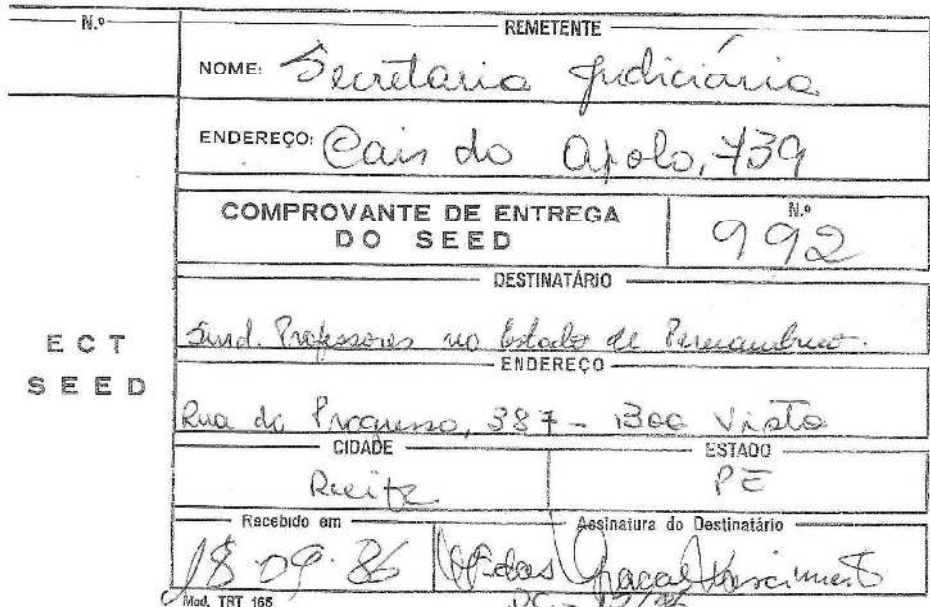 N.º
REMETENTE
NOME: Secretaria Judiciária
ENDEREÇO: Cais do Apolo, 739
COMPROVANTE DE ENTREGA
DO SEED
N.º
992
DESTINATÁRIO
Sind. Professores no Estado de Pernambuco.
ENDEREÇO
ECT
SEED
Rua do Progresso, 387 - Boa Vista
CIDADE
ESTADO
Recife
PE
Recebido em
Assinatura do Destinatário
18.09.86
das Graças Nascimento
Mod. TRT 165